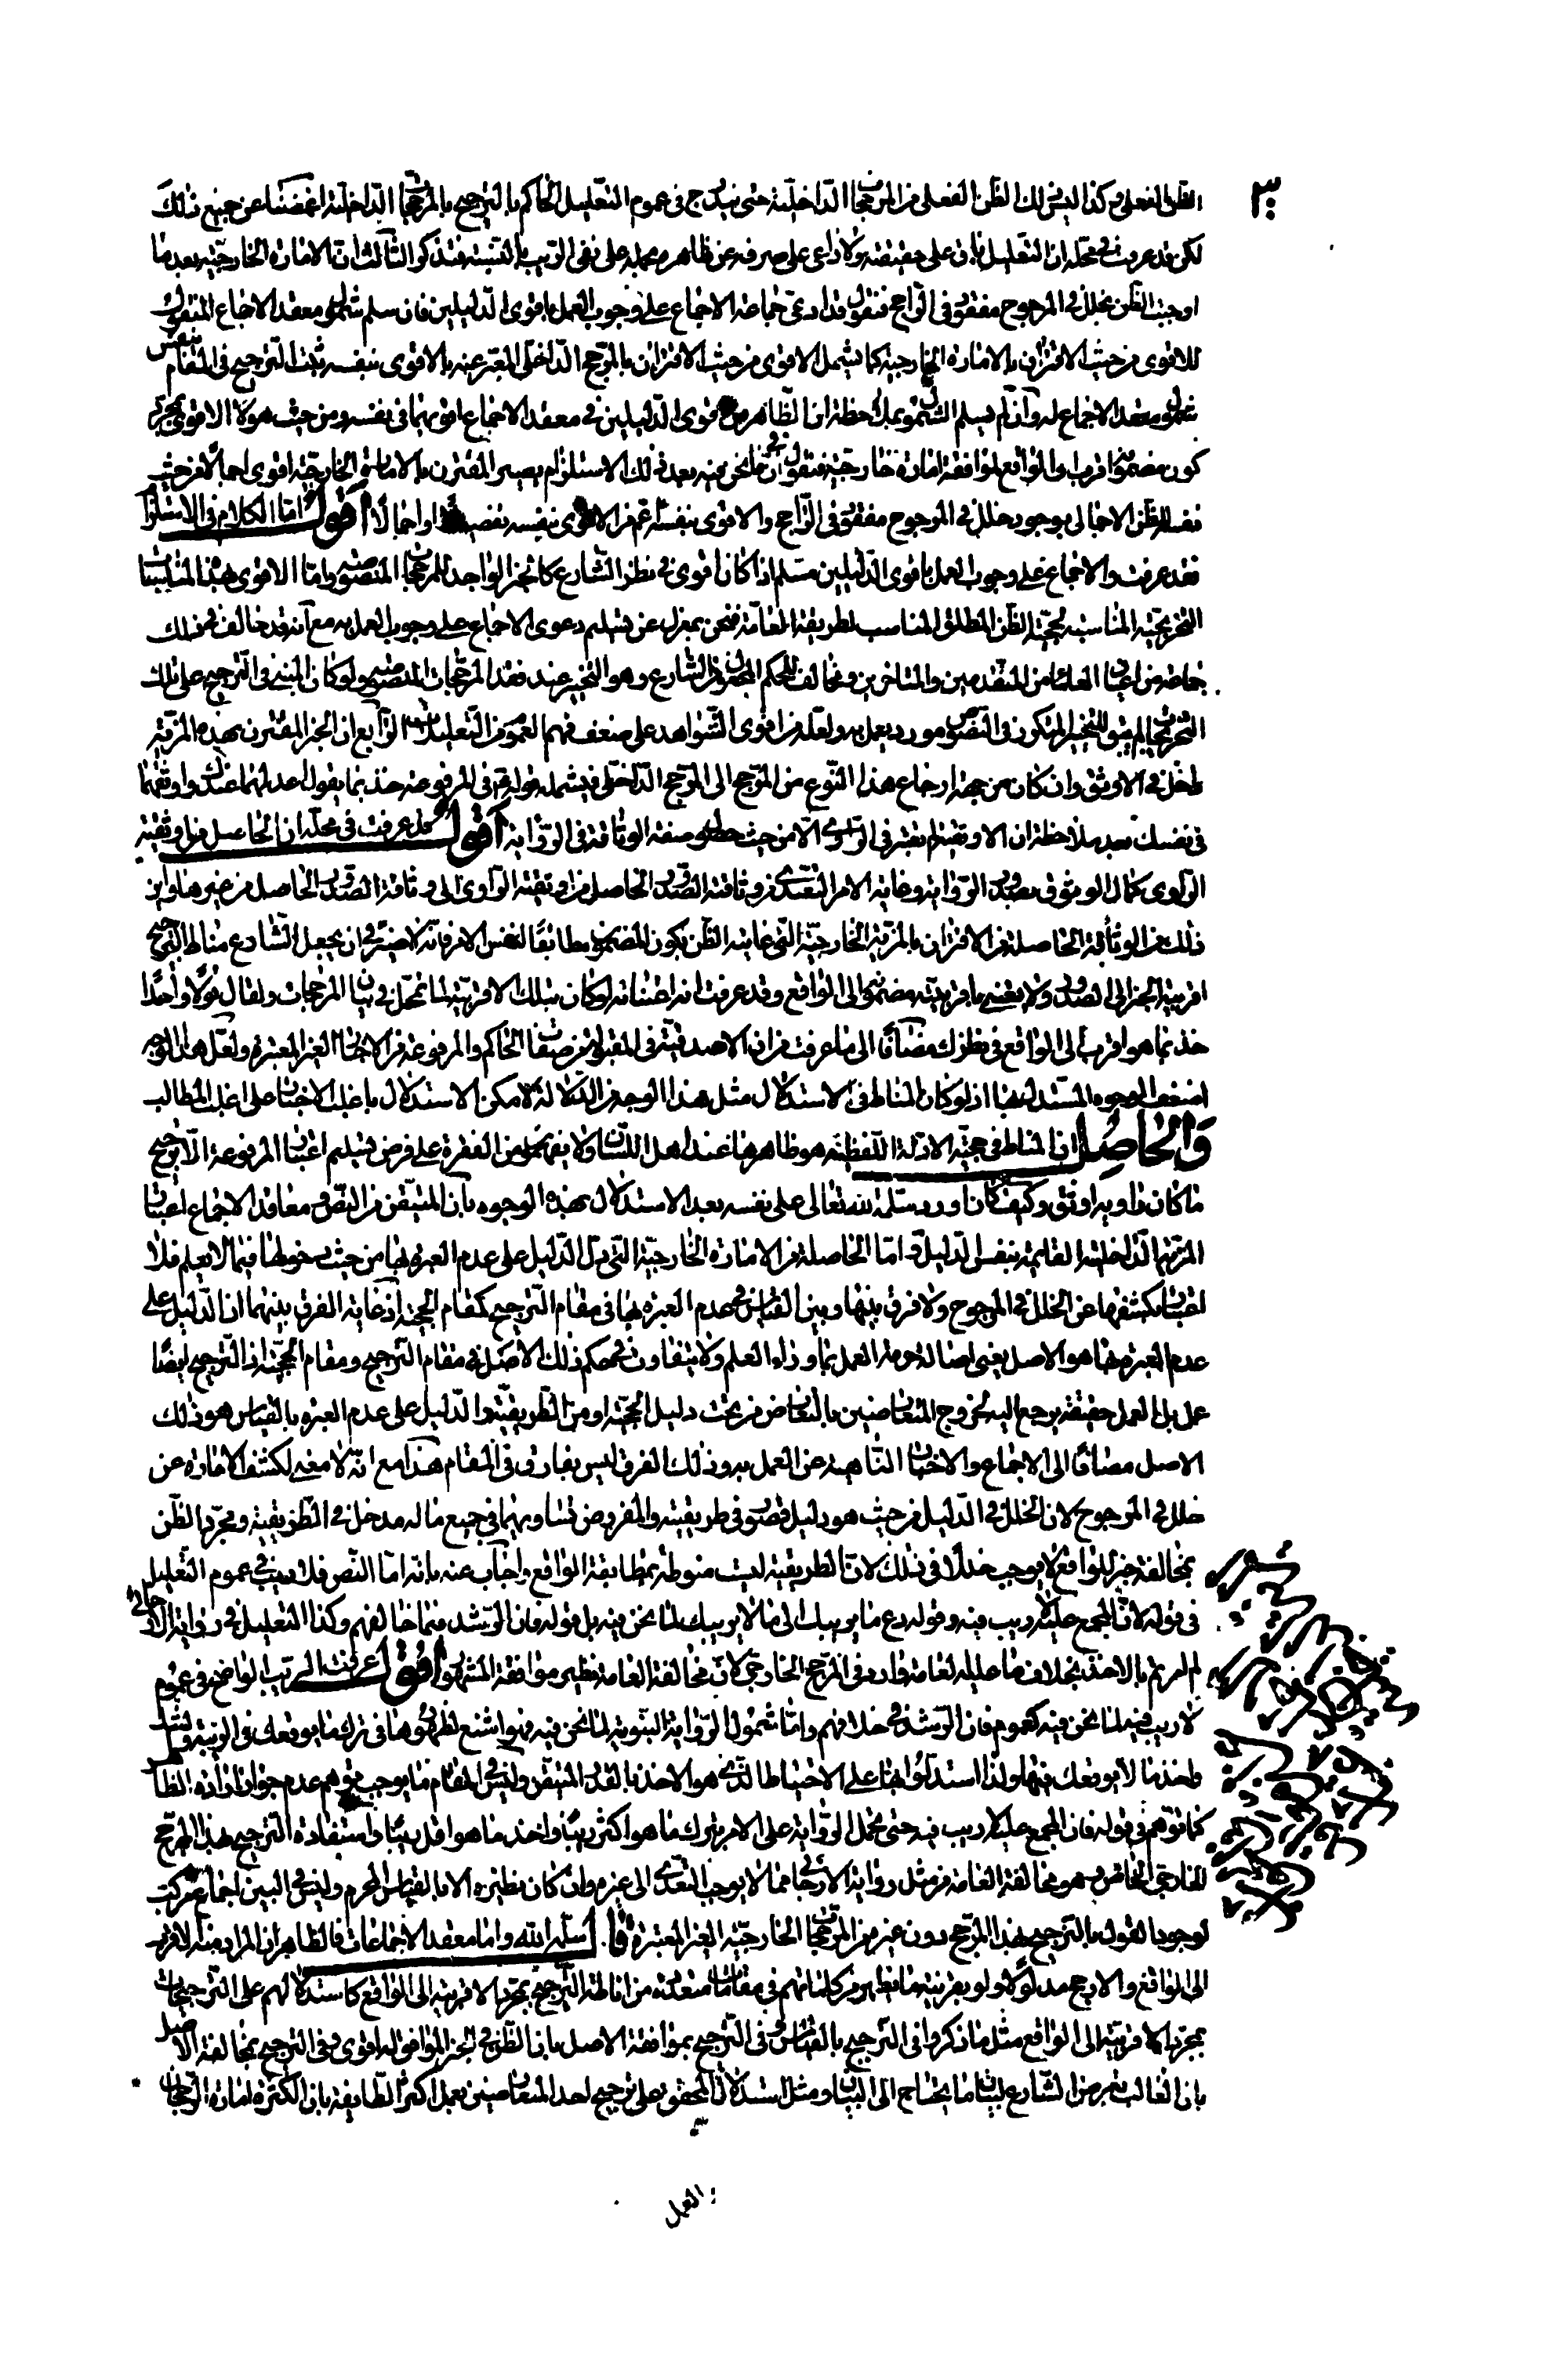 ٣٠
الظن الفعلى وكذا ليس ذلك الظن الفعلى من المرجحات الداخلية حتى يندرج فى عموم التعليل الحاكم بالترجيح بالمرجحات الداخلية اغمضنا عن جميع ذلك
لكن قد عرفت فى محله ان التعليل باق على حقيقته ولا داعى على صرفه عن ظاهره بحمله على نفى الريب بالنسبة فتذكر الثالث ان الامارة الخارجية بعد ما
اوجبت الظن بخلل فى المرجوح مفقود فى الراجح فنقول قد ادعى جماعة الاجماع على وجوب العمل باقوى الدليلين فان سلم شمول معقد الاجماع المنقول
للاقوى من حيث الاقتران بالامارة الخارجية كما يشمل الاقوى من حيث الاقتران بالمرجح الداخلى المعبر عنه بالاقوى بنفسه ثبت الترجيح فى المقام بنفس
شمول معقد الاجماع له وان لم يسلم الشمول بملاحظة ان الظاهر من اقوى الدليلين فى معقد الاجماع اقويهما فى نفسه ومن حيث هو لا الاقوى بمجرد
كون مضمونه اقرب الى الواقع لموافقة امارة خارجية فنقول ان فى ما نحن فيه بعد ذلك الاستلزام يصير المقترن بالامارة الخارجية اقوى اجمالا من حيث
نفسه للظن الاجمالى بوجود خلل فى المرجوح مفقود فى الراجح والاقوى بنفسه اعم من الاقوى بنفسه تفصيلا او اجمالا اقول اما الكلام فى الاستلزام
فقد عرفت والاجماع على وجوب العمل باقوى الدليلين مسلم اذا كان اقوى فى نظر الشارع كالخبر الواجد للمرجحات المنصوصة واما الاقوى بهذا
التخريجية المناسبة لحجية الظن المطلق المناسب لطريقة العامة فنحن بمعزل عن تسليم دعوى الاجماع على وجوب العمل به مع انه قد خالف فى ذلك
جماعة من اعيان العلماء من المتقدمين والمتاخرين ومخالف للحكم المنصوص من الشارع وهو التخيير عند فقد المرجحات المنصوصة ولو كان المبنى فى الترجيح على تلك
التخريجات لم يبق للتخيير المذكور فى النصوص مورد يعمل به ولعله من اقوى الشواهد على ضعف فهم العموم من التعليلات الرابع ان الخبر المقترن بهذه المزية
داخل فى الاوثق وان كان من جهة ارجاع هذا النوع من المرجح الى المرجح الداخلى فيشمله قوله فى المرفوعة خذ بما يقول اعدلهما عندك واوثقهما
فى نفسك بعد ملاحظة ان الاوثقية لم تعتبر فى الراوى الا من حيث حصول صفة الوثاقة فى الرواية اقول قد عرفت فى محله ان الحاصل من اوثقية
الراوى كمال الوثوق بصدور الرواية وغاية الامر التعدى من وثاقة الصدور الحاصل من اوثقية الراوى الى وثاقة الصدور الحاصل من غيرها واين
ذلك من الوثاقة الحاصلة من الاقتران بالمزية الخارجية التى غايته الظن بكون المضمون مطابقا لنفس الامر فانه لا ضير فى ان يجعل الشارع مناط الترجيح
اقربية الخبر الى الصدور ولا يعتنى باقربية مضمونه الى الواقع وقد عرفت انه اعتنائه لو كان بتلك الاقربية لما تمحل فى بيان المرجحات ولقال قولا واحدا
خذ بما هو اقرب الى الواقع فى نظرك مضافا الى ما عرفت من ان الاصدقية فى المقبولة من صفات الحاكم والمرفوعة من الاخبار الغير المعتبرة ولعل هذا الوجه
اضعف الوجوه المستدل بها اذ لو كان المناط فى الاستدلال مثل هذا الوجه من الدلالة لامكن الاستدلال باغلب الاخبار على اغلب المطالب
والحاصل ان المناط فى حجية الادلة اللفظية هو ظاهرها عند اهل اللسان ولا يفهمون من الفقرة على فرض تسليم اعتبار المرفوعة الا ترجيح
ما كان راويه اوثق وكيف كان اورد سلمه الله تعالى على نفسه بعد الاستدلال بهذه الوجوه بان المتيقن من النص ومعاقد الاجماع اعتبار
المزية الداخلية القائمة بنفس الدليل واما الحاصلة من الامارة الخارجية التى دل الدليل على عدم العبرة بها من حيث دخولها فيما لا يعلم فلا
اعتبار بكشفها عن الخلل فى المرجوح ولا فرق بينها وبين القياس فى عدم العبرة بها فى مقام الترجيح كمقام الحجية اذ غاية الفرق بينهما ان الدليل على
عدم العبرة بها هو الاصل يعنى اصالة حرمة العمل بما وراء العلم ولا يتفاوت فى حكم ذلك الاصل فى مقام الترجيح ومقام الحجية اذ الترجيح ايضا
عمل بل العمل حقيقة يرجع اليه لخروج المتعارضين بالتعارض من تحت دليل الحجية او من الطريقية والدليل على عدم العبرة بالقياس هو ذلك
الاصل مضافا الى الاجماع والاخبار الناهية عن العمل به وذلك الفرق ليس بفارق فى المقام هذا مع انه لا معنى لكشف الامارة عن
خلل فى المرجوح لان الخلل فى الدليل من حيث هو دليل قصور فى طريقيته والمفروض تساويهما فى جميع ما له مدخل فى الطريقية ومجرد الظن
بمخالفة خبر للواقع لا يوجب خللا فى ذلك لان الطريقية ليست منوطة بمطابقة الواقع واجاب عنه بانه اما النص فلا ريب فى عموم التعليل
فى قوله لان المجمع عليه لا ريب فيه وقوله دع ما يريبك الى ما لا يريبك لما نحن فيه بل قوله فان الرشد فيما خالفهم وكذا التعليل فى رواية الارجانى
لم امرتم بالاخذ بخلاف ما عليه العامة وارد فى المرجح الخارجى لان مخالفة العامة نظير موافقة المشهور اقول عرفت الريب الواضح فى عموم
لا ريب فيه لما نحن فيه كعموم فان الرشد فى خلافهم واما شمول الرواية النبوية لما نحن فيه فهو اشنع لظهورها فى ترك ما يوقعك فى الريبة
واخذ ما لا يوقعك فيها ولذا استدلوا بها على الاحتياط الذى هو الاخذ بالقدر المتيقن وليس فى المقام ما يوجب توهم عدم جواز ارادة الظاهر
كما توهم فى قوله فان المجمع عليه لا ريب فيه حتى تحمل الرواية على الامر بترك ما هو اكثر ريبا واخذ ما هو اقل ريبا واستفادة الترجيح بهذا المرجح
الخارجى الخاص وهو مخالفة العامة من مثل رواية الارجانى مما لا يوجب التعدى الى غيره وان كان نظيره الا بالقياس المحرم وليس فى البين اجماع مركب
لوجود القول بالترجيح بهذا المرجح دون غيره من المرجحات الخارجية الغير المعتبرة قال سلمه الله واما معقد الاجماعات فالظاهر ان المراد منه الاقرب
الى الواقع والارجح مدلولا ولو بقرينة ما يظهر من كلماتهم فى مقامات متعددة من اناطة الترجيح بمجرد الاقربية الى الواقع كاستدلالهم على الترجيحات
بمجرد الاقربية الى الواقع مثل ما ذكروا فى الترجيح بالقياس وفى الترجيح بموافقة الاصل بان الظن فى الخبر الموافق له اقوى وفى الترجيح بمخالفة الاصل
بان الغالب تعرض الشارع لبيان ما يحتاج الى البيان ومثل استدلال المحقق على ترجيح احد المتعارضين بعمل اكثر الطائفة بان الكثرة امارة الرجحان
العمل